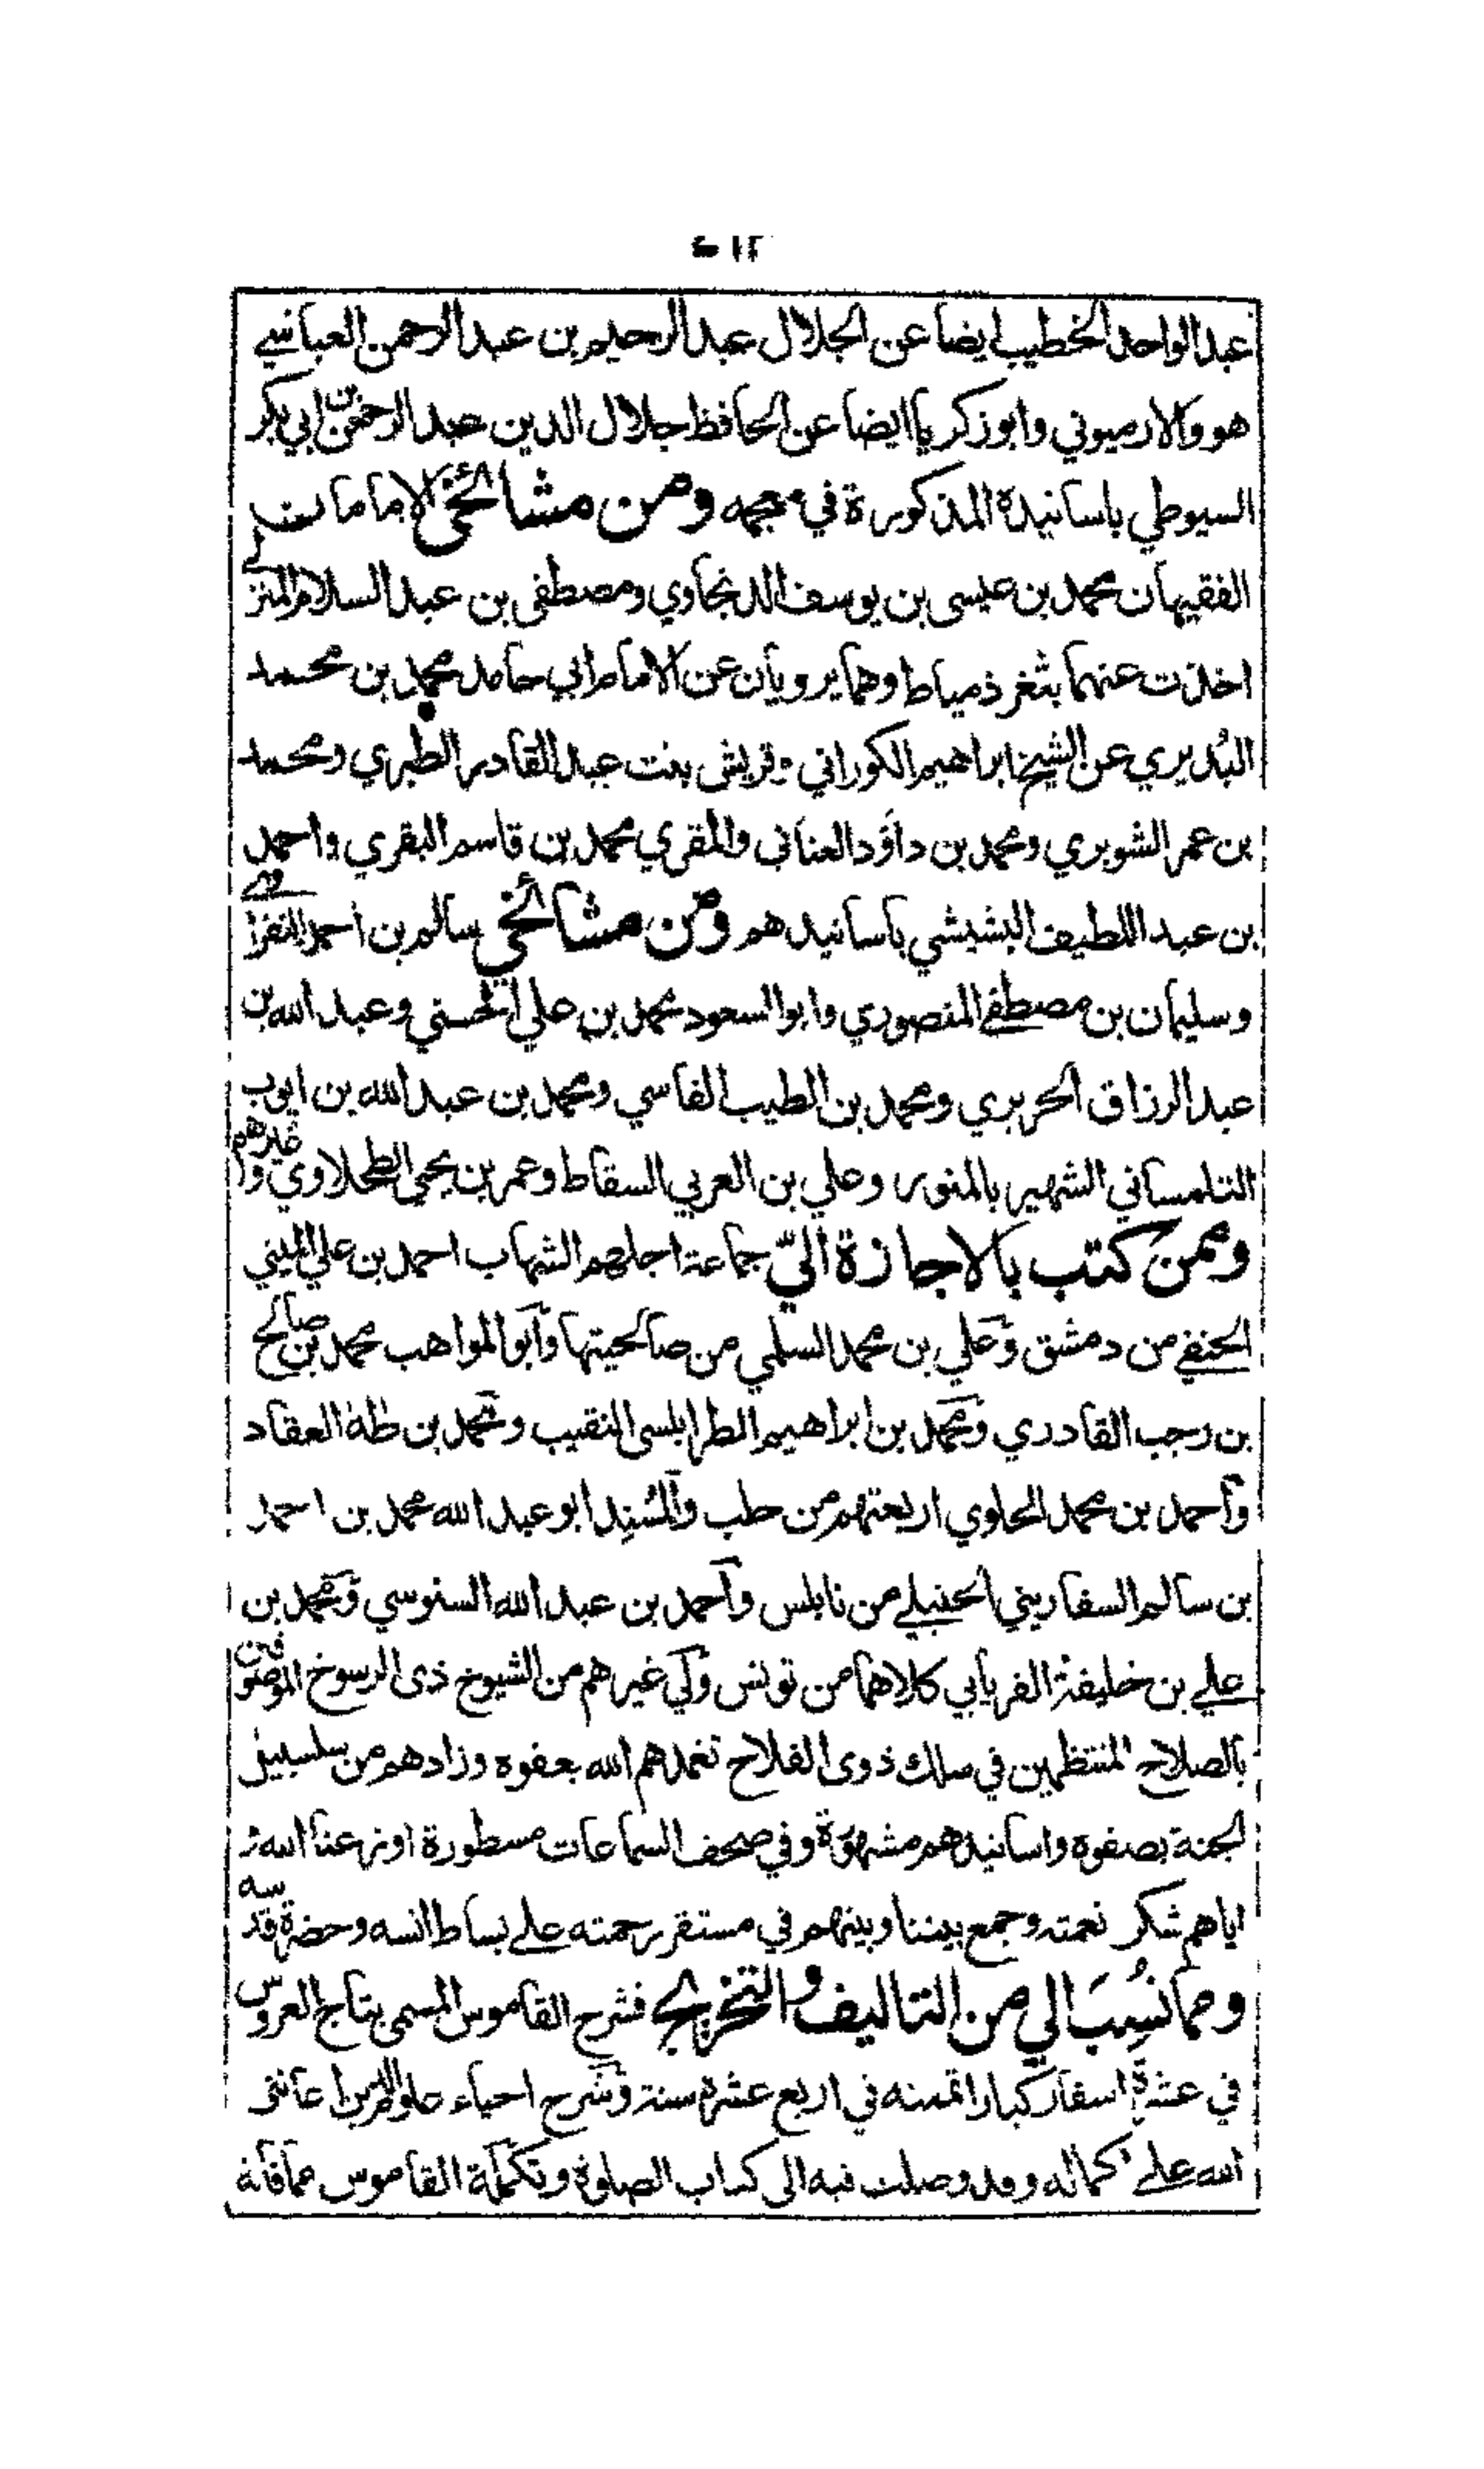 ٤١٢
عبد الواحد الخطيب ايضا عن الجلال عبد الرحيم بن عبد الرحمن العباسي
هو والارميوني وابو زكريا ايضا عن الحافظ جلال الدين عبد الرحمن بن ابي بكر
السيوطي باسانيدة المذكورة في معجمه ومن مشائخى الامامان
الفقيهان محمد بن عيسى بن يوسف الدنجاوي ومصطفى بن عبد السلام المنزلي
اخذت عنهما بثغر ذمياط وهما يرويان عن الامام ابي حامد محمد بن محمد
البُديري عن الشيخ ابراهيم الكوراني وقريش بنت عبد القادر الطبري ومحمد
بن عمر الشوبري ومحمد بن داؤد العناني والمقري محمد بن قاسم البقري واحمد
بن عبد اللطيف البشبشي باسانيدهم ومن مشائخي سالم بن احمد النفراوي
وسليمان بن مصطفے المنصوري وابو السعود محمد بن علي الحسني وعبد الله بن
عبد الرزاق الحريري ومحمد بن الطيب الفاسي ومحمد بن عبد الله بن ايوب
التلمساني الشهير بالمنور وعلي بن العربي السقاط وعمر بن يحيى الطحلاوي وغيرهم
وممن كتب بالاجازة اليّ جماعة اجلهم الشهاب احمد بن علي المنيني
الحنفے من دمشق وعلي بن محمد السلمي من صالحيتها وابو المواهب محمد بن صالح
بن رجب القادري ومحمد بن ابراهيم الطرابلسى النقيب ومحمد بن طه العقاد
واحمد بن محمد الحلوي اربعتهم من حلب والمُسْنِد ابو عبد الله محمد بن احمد
بن سالم السفاريني الحنبلے من نابلس واحمد بن عبد الله السنوسي ومحمد بن
علے بن خليفة الغرياني كلاهما من تونس ولي غيرهم من الشيوخ ذى الرسوخ الموصوفين
بالصلاح المنتظمين في سلك ذوى الفلاح تغمدهم الله بعفوه وزادهم من سلسبيل
الجنة بصفوه واسانيدهم مشهورة وفي صحف السماعات مسطورة اوزعنا الله
اياهم شكر نعمته وجمع بيننا وبينهم في مستقر رحمته علے بساط انسه وحضرة قدسه
ومما نُسِبَ الي من التاليف والتخريج فشرح القاموس المسمى بتاج العروس
في عشرة اسفار كبار اتممته في اربع عشرة سنة وشرح احياء علوم الدين اعانني
الله علے اكماله وقد وصلت فيه الى كتاب الصلوة وتكملة القاموس مما فاته